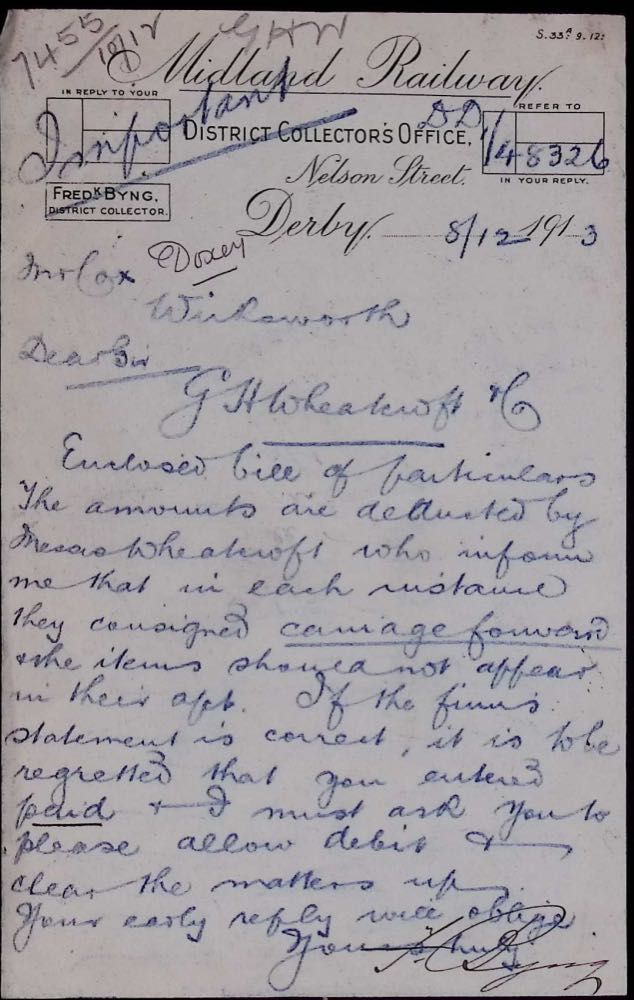 7455
10/12
GHW
S. 33A 9. 12.
Midland Railway.
IN REPLY TO YOUR
Important
DISTRICT COLLECTOR'S OFFICE,
DD
REFER TO
1/48326
IN YOUR REPLY.
Nelson Street,
FREDK BYNG,
DISTRICT COLLECTOR.
Derby, 8/12 1913
Mr Cox
Doxey
Wirksworth
Dear Sir
G H Wheatcroft & Co
Enclosed bill of particulars
The amounts are deducted by
Messrs Wheatcroft who inform
me that in each instance
they consigned carriage forward
& the items should not appear
in their a/ct. If the firm's
statement is correct, it is to be
regretted that you entered
paid & I must ask you to
please allow debit &
clear the matters up.
Your early reply will oblige
Yours truly
F Byng